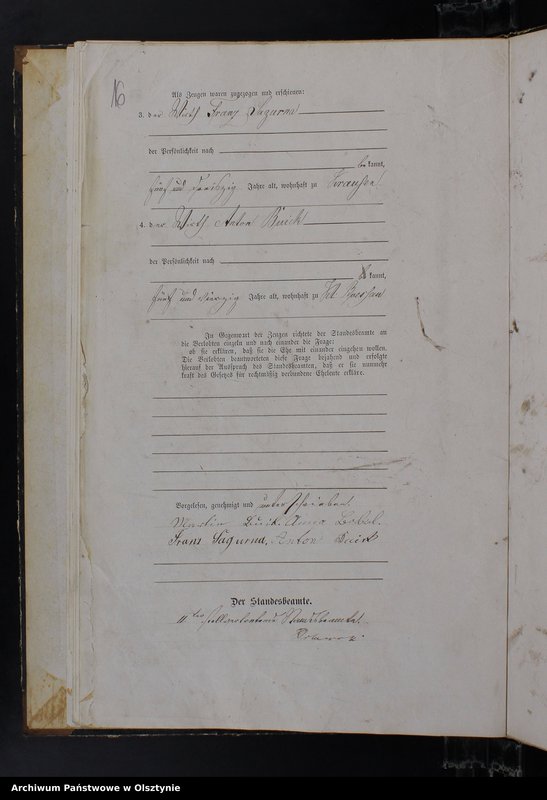 16
Als Zeugen waren zugezogen und erschienen:
3. der Wirth Franz Sagurna
der Persönlichkeit nach
be kannt,
fünf und dreißig Jahre alt, wohnhaft zu
4. der Wirth Anton
der Persönlichkeit nach
kannt,
fünf und vierzig Jahre alt, wohnhaft zu
In Gegenwart der Zeugen richtete der Standesbeamte an
die Verlobten einzeln und nach einander die Frage:
ob sie erklären, daß sie die Ehe mit einander eingehen wollen.
Die Verlobten beantworteten diese Frage bejahend und erfolgte
hierauf der Ausspruch des Standesbeamten, daß er sie nunmehr
kraft des Gesetzes für rechtmäßig verbundene Eheleute erkläre.
Vorgelesen, genehmigt und unterschrieben.
Martin Anna
Franz Sagurna, Anton
Der Standesbeamte.
stellvertretende Standesbeamte
Archiwum Państwowe w Olsztynie